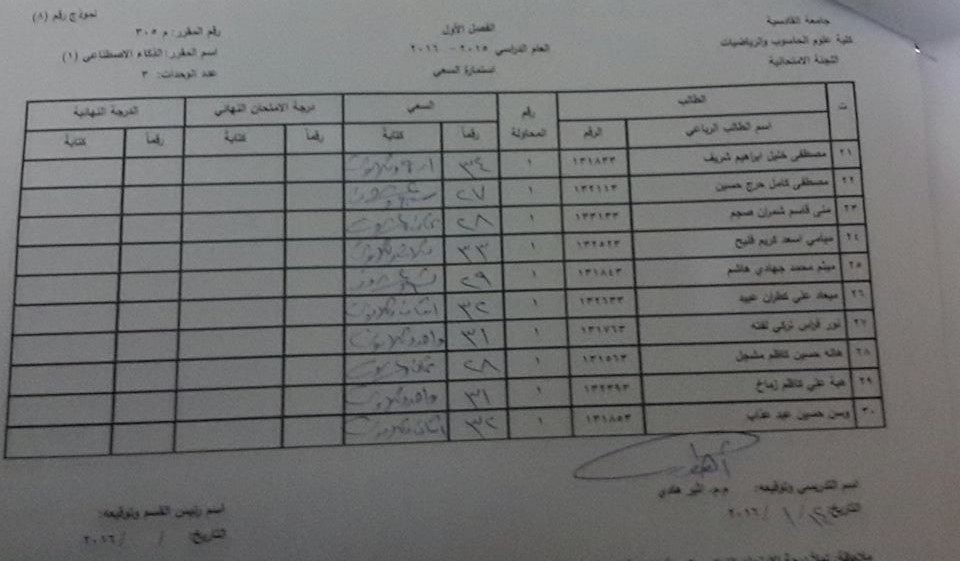 جامعة القادسية
كلية علوم الحاسوب والرياضيات
اللجنة الامتحانية
الفصل الأول
العام الدراسي ٢٠١٥ - ٢٠١٦
استمارة السعي
نموذج رقم (٨)
رقم المقرر: م ٣٠٥
اسم المقرر: الذكاء الاصطناعي (١)
عدد الوحدات: ٣
ت الطالب رقم المحاولة السعي درجة الامتحان النهائي الدرجة النهائية
اسم الطالب الرباعي الرقم رقماً كتابة رقماً كتابة رقماً كتابة
٢١ مصطفى خليل ابراهيم شريف ١٣١٨٣٣ ١ ٣٤ اربع وثلاثون
٢٢ مصطفى كامل حرج حسين ١٣٢١١٣ ١ ٢٧ سبع وعشرون
٢٣ منى قاسم شمران ١٣٣١٣٣ ١ ٢٨ ثمان وعشرون
٢٤ ميامي اسعد كريم فليح ١٣٢٥٢٣ ١ ٣٣ ثلاث وثلاثون
٢٥ ميثم محمد جهادي هاشم ١٣١٨٤٣ ١ ٢٩ تسع وعشرون
٢٦ ميعاد علي كطران عبيد ١٣٢٦٣٣ ١ ٣٢ اثنان وثلاثون
٢٧ نور فراس تركي لفته ١٣١٧٦٣ ١ ٣١ واحد وثلاثون
٢٨ هاله حسين كاظم مشجل ١٣١٥٦٣ ١ ٢٨ ثمان وعشرون
٢٩ هبة علي كاظم زماخ ١٣٢٣٩٣ ١ ٣١ واحد وثلاثون
٣٠ وسن حسين عبد عذاب ١٣١٨٥٣ ١ ٣٢ اثنان وثلاثون
اسم التدريسي وتوقيعه: م.م. اثير هادي
التاريخ: / ١ / ٢٠١٦
اسم رئيس القسم وتوقيعه:
التاريخ: / / ٢٠١٦